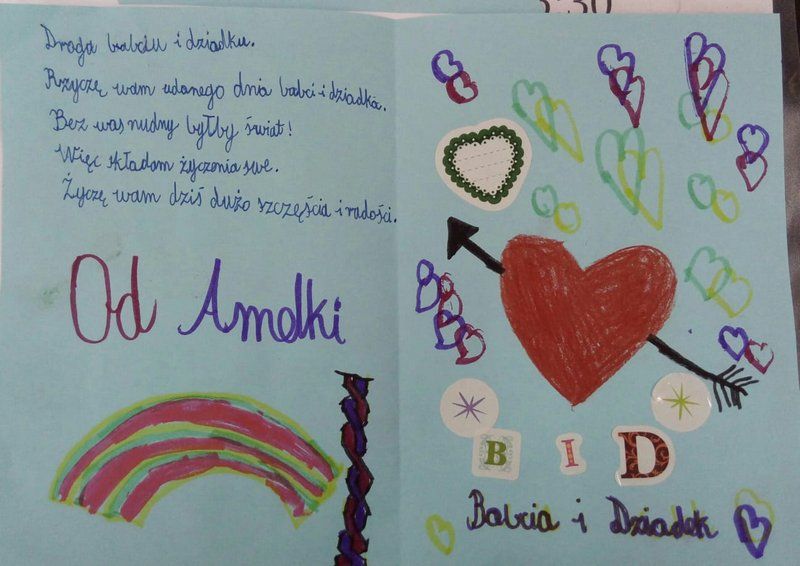 Droga babciu i dziadku.
Rzyczę wam udanego dnia babci i dziadka.
Bez was nudny byłby świat!
Więc składam życzenia swe.
Życzę wam dziś dużo szczęścia i radości.
Od Amelki
B I D
Babcia i Dziadek